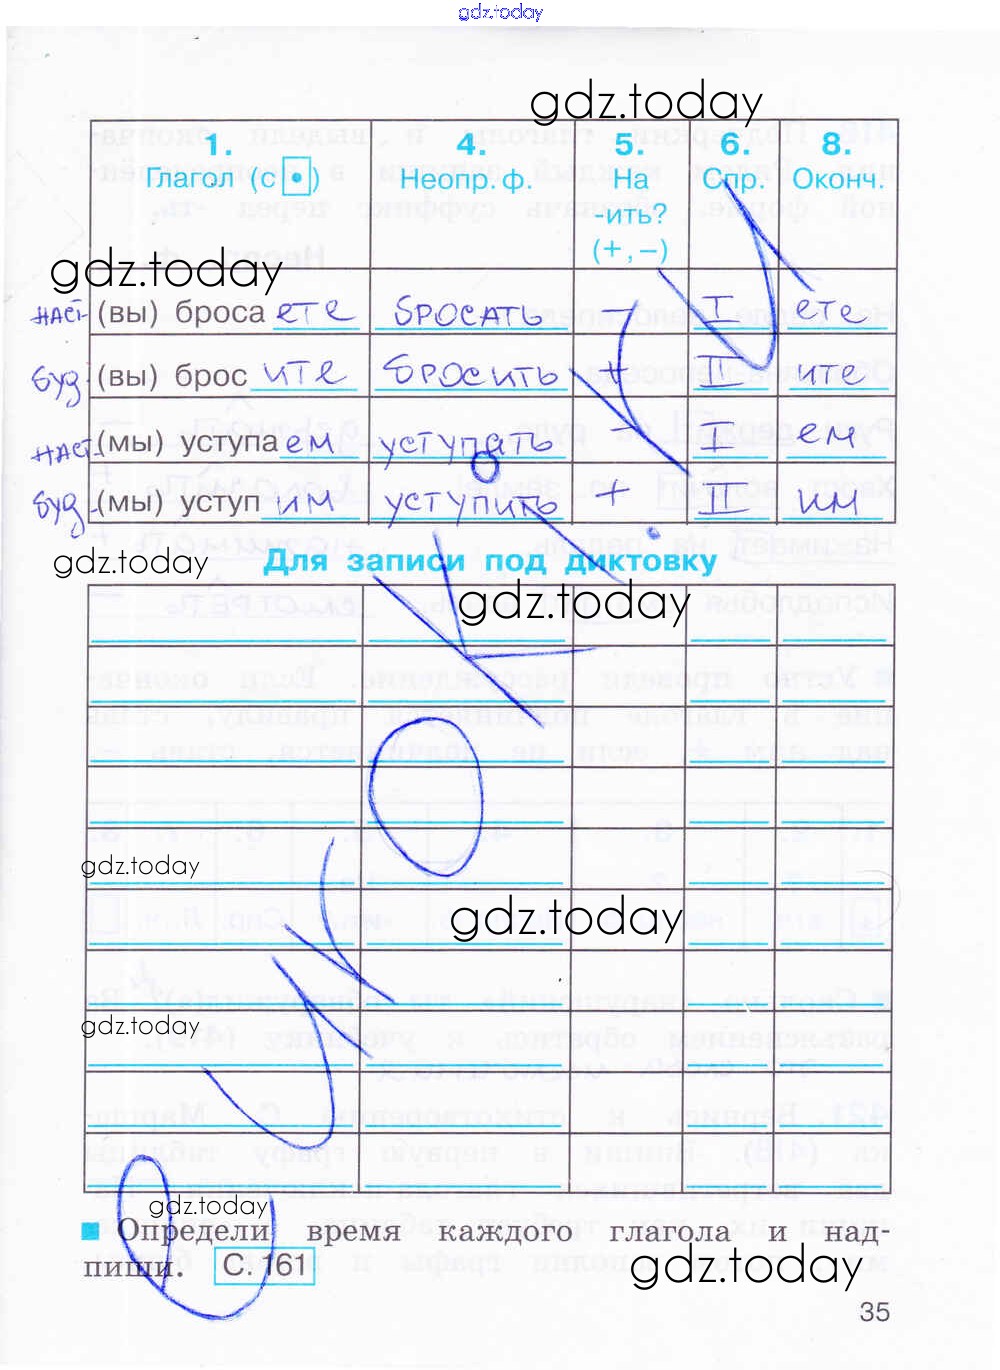 gdz.today
gdz.today
1. 4. 5. 6. 8.
Глагол (с •) Неопр. ф. На Спр. Оконч.
-ить?
(+, –)
gdz.today
наст. (вы) броса ете бросать – I ете
буд. (вы) брос ите бросить + II ите
наст. (мы) уступа ем уступать – I ем
буд. (мы) уступ им уступить + II им
gdz.today Для записи под диктовку
gdz.today
gdz.today
gdz.today
gdz.today
gdz.today
Определи время каждого глагола и над-
пиши. С. 161
gdz.today
35